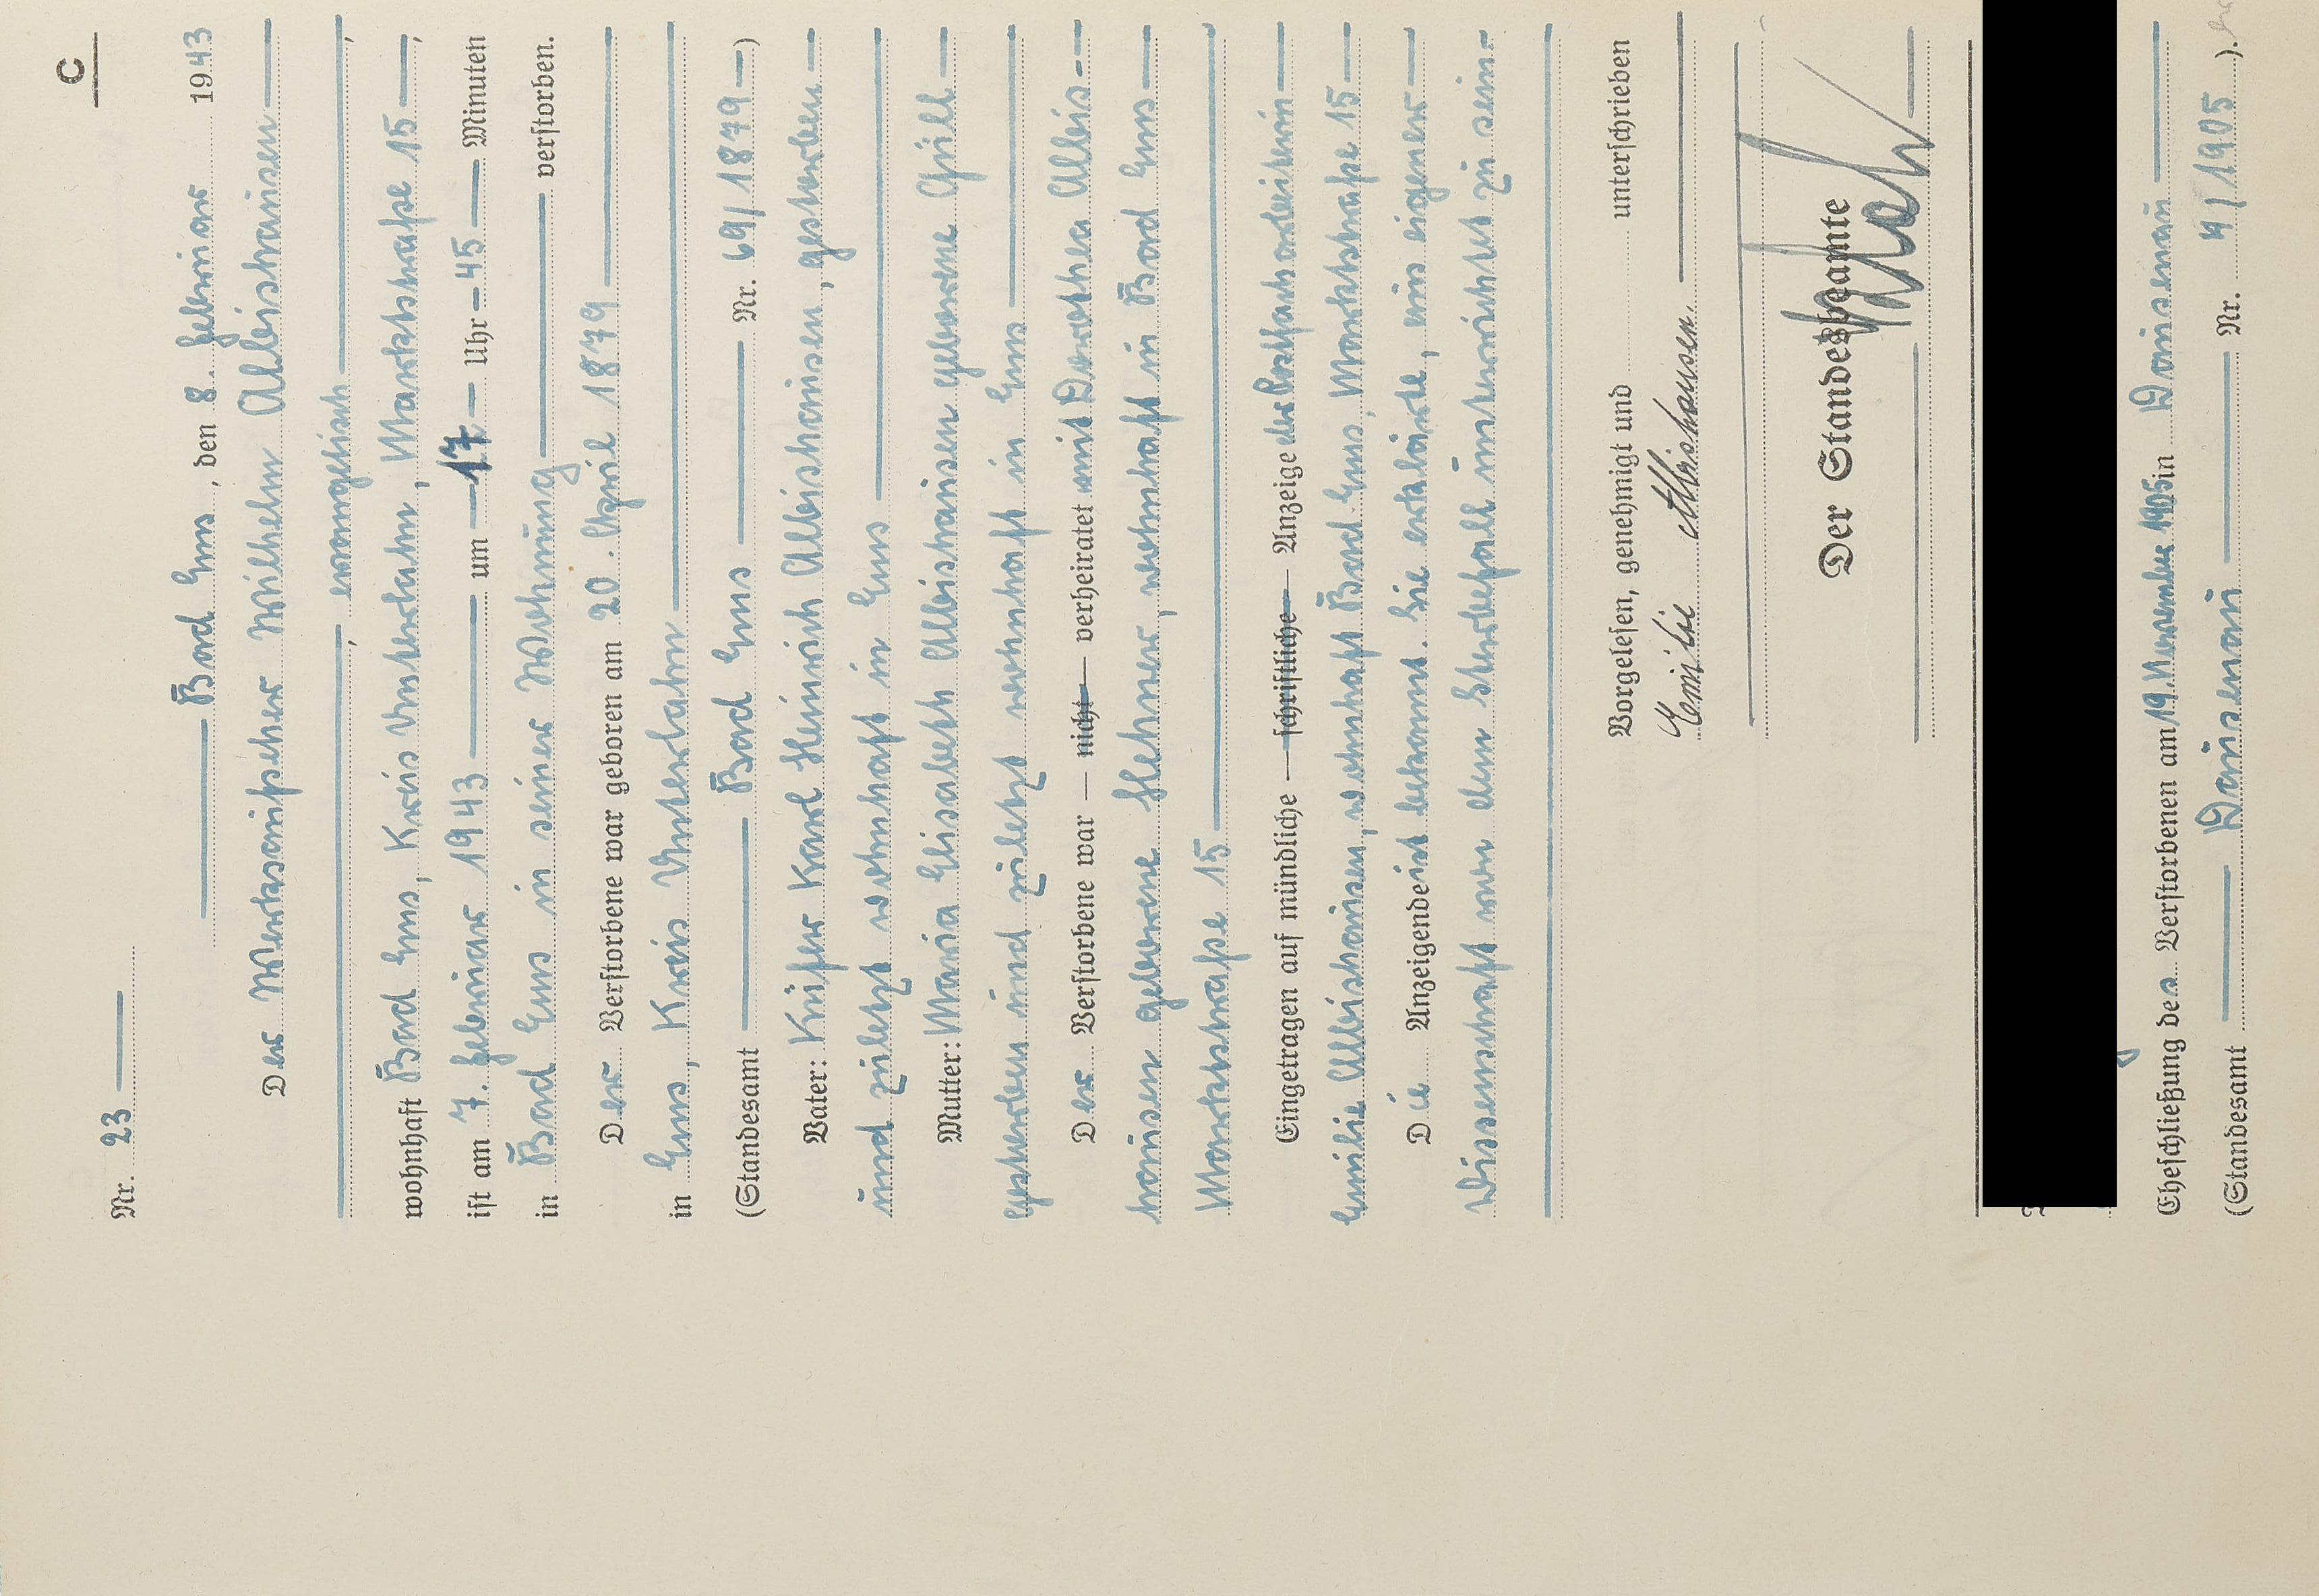 C
Nr. 23
Bad Ems, den 8. Februar 1943
Der Werkaufseher Wilhelm Albishausen
, evangelisch,
wohnhaft Bad Ems, Kreis Unterlahn, Marktstraße 15,
ist am 7. Februar 1943 um 17 Uhr 45 Minuten
in Bad Ems in seiner Wohnung verstorben.
Der Verstorbene war geboren am 20. April 1879
in Ems, Kreis Unterlahn
(Standesamt Bad Ems Nr. 69/1879)
Vater: Küfer Karl Heinrich Albishausen, gestorben
und zuletzt wohnhaft in Ems
Mutter: Maria Elisabeth Albishausen geborene Grill
gestorben und zuletzt wohnhaft in Ems
Der Verstorbene war — nicht — verheiratet mit Dorothea Albis-
hausen geborene Flehner, wohnhaft in Bad Ems
Marktstraße 15
Eingetragen auf mündliche — schriftliche — Anzeige der Postfacharbeiterin
Emilie Albishausen, wohnhaft Bad Ems, Marktstraße 15
Die Anzeigende ist bekannt. Sie erklärte, aus eigener
Wissenschaft von dem Sterbefall unterrichtet zu sein.
Vorgelesen, genehmigt und unterschrieben
Emilie Albishausen.
Der Standesbeamte
Eheschließung des Verstorbenen am 19. November 1905 in Dausenau
(Standesamt Dausenau Nr. 4/1905).